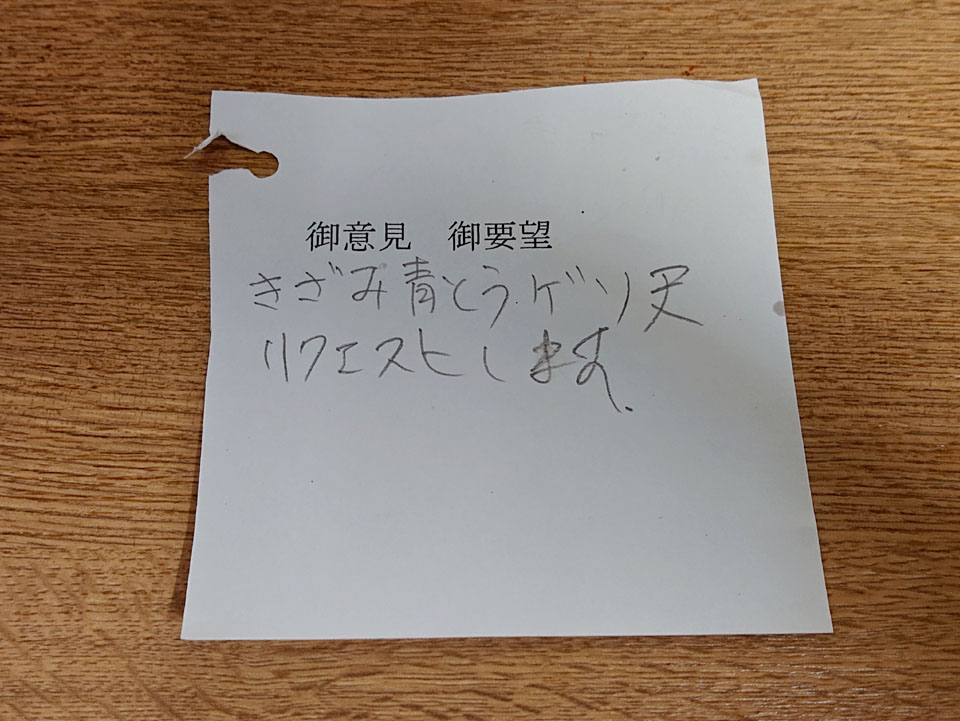 御意見　御要望
きざみ青とうゲソ天
リクエストします.